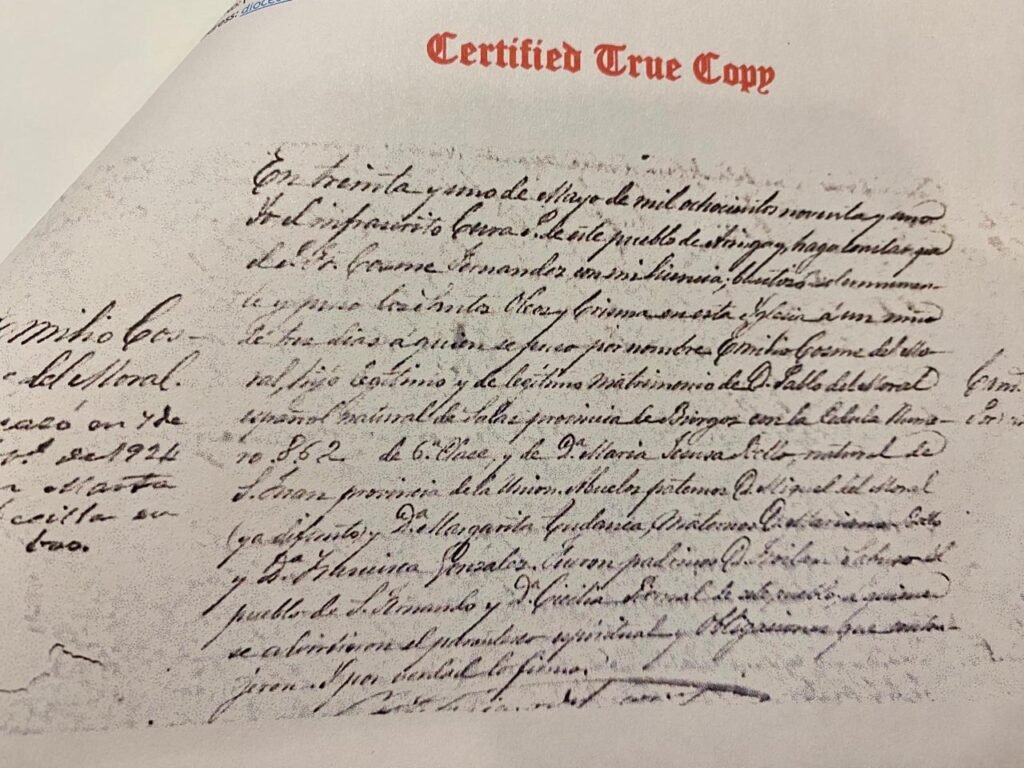 ess: dioce
Certified True Copy
En treinta y uno de Mayo de mil ochocientos noventa y uno
Yo el infrascrito Cura P. de este pueblo de Aringay, hago constar que
el P. Fr. Cosme Fernandez con mi licencia, bautizó solemnemen-
te y puso los Santos Oleos y Crisma en esta Yglesia á un niño
de tres dias á quien se puso por nombre Emilio Cosme del Mo-
ral, hijo legítimo y de legítimo matrimonio de D. Pablo del Moral
español natural de Salas provincia de Burgos con la Cedula Nume-
ro 862 de 6.ª Clase, y de D.ª Maria Jesusa, natural de
S. Juan provincia de la Union. Abuelos paternos D. Miguel del Moral
(ya difunto) y D.ª Margarita, Maternos D. Mariano
y D.ª Francisca Gonzalez. Fueron padrinos D. del
pueblo de S. Fernando y D.ª Cicilia de este pueblo, a quienes
se advirtieron el parentesco espiritual y obligaciones que contra-
jeron. Y por verdad lo firmo.
Emilio Cos-
del Moral.
casó en 7 de
de 1924
Marta
cilla en
bao.